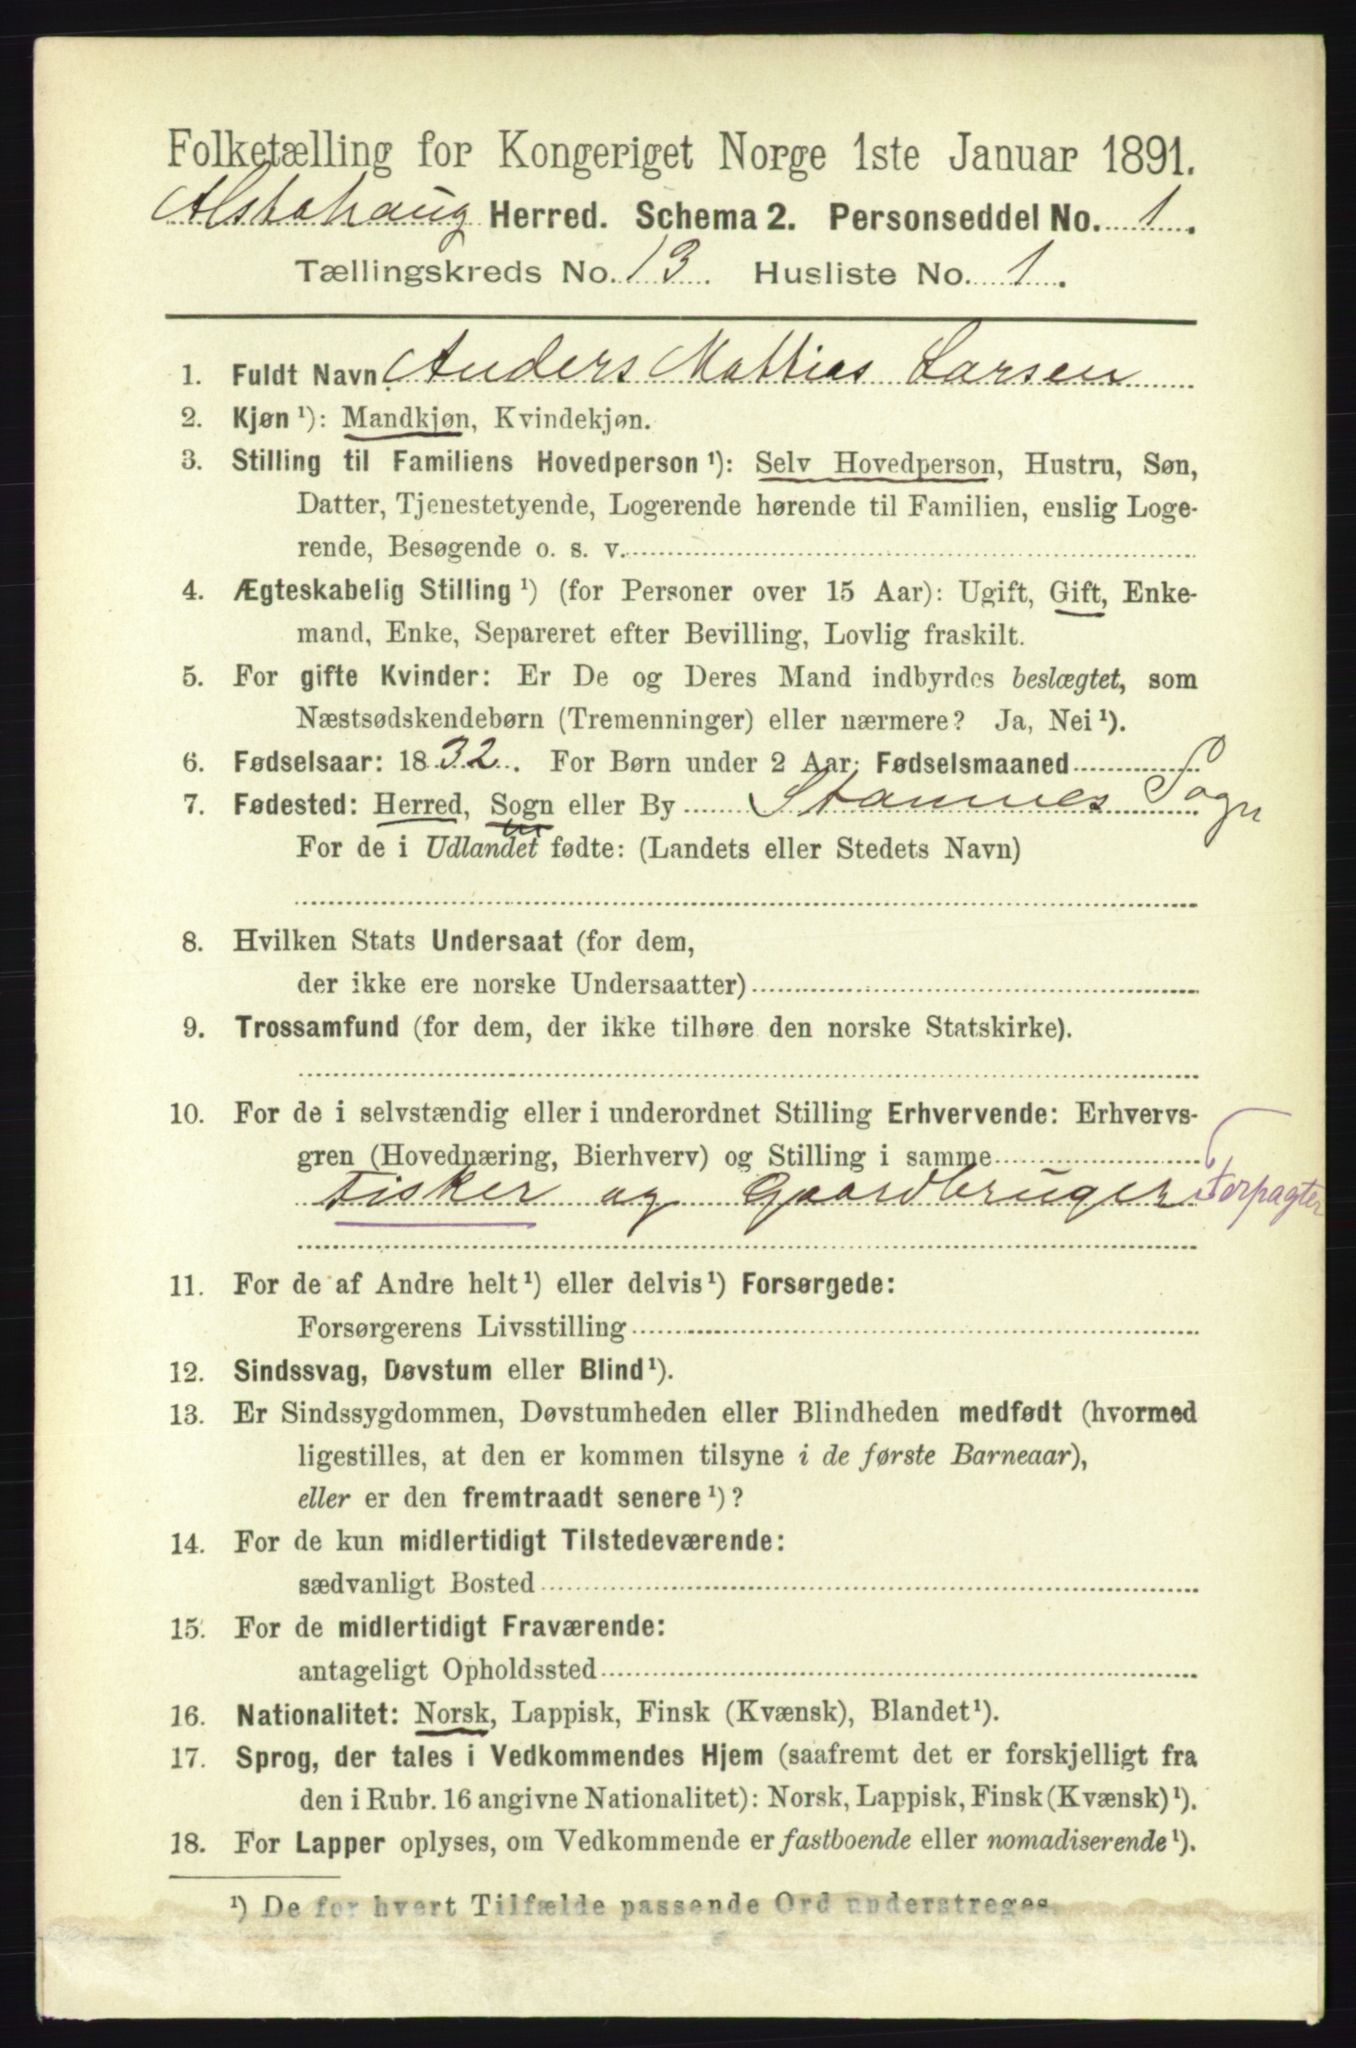 Folketælling for Kongeriget Norge 1ste Januar 1891.
Alstahaug Herred. Schema 2. Personseddel No. 1.
Tællingskreds No. 13. Husliste No. 1.
1. Fuldt Navn Anders Mattias Larsen
2. Kjøn ¹): Mandkjøn, Kvindekjøn.
3. Stilling til Familiens Hovedperson ¹): Selv Hovedperson, Hustru, Søn,
Datter, Tjenestetyende, Logerende hørende til Familien, enslig Loge-
rende, Besøgende o. s. v.
4. Ægteskabelig Stilling ¹) (for Personer over 15 Aar): Ugift, Gift, Enke-
mand, Enke, Separeret efter Bevilling, Lovlig fraskilt.
5. For gifte Kvinder: Er De og Deres Mand indbyrdes beslægtet, som
Næstsødskendebørn (Tremenninger) eller nærmere? Ja, Nei ¹).
6. Fødselsaar: 1832. For Børn under 2 Aar: Fødselsmaaned
7. Fødested: Herred, Sogn eller By Stamnes Sogn
For de i Udlandet fødte: (Landets eller Stedets Navn)
8. Hvilken Stats Undersaat (for dem,
der ikke ere norske Undersaatter)
9. Trossamfund (for dem, der ikke tilhøre den norske Statskirke).
10. For de i selvstændig eller i underordnet Stilling Erhvervende: Erhvervs-
gren (Hovednæring, Bierhverv) og Stilling i samme
Fisker og Gaardbruger Forpagter
11. For de af Andre helt ¹) eller delvis ¹) Forsørgede:
Forsørgerens Livsstilling
12. Sindssvag, Døvstum eller Blind ¹).
13. Er Sindssygdommen, Døvstumheden eller Blindheden medfødt (hvormed
ligestilles, at den er kommen tilsyne i de første Barneaar),
eller er den fremtraadt senere ¹)?
14. For de kun midlertidigt Tilstedeværende:
sædvanligt Bosted
15. For de midlertidigt Fraværende:
antageligt Opholdssted
16. Nationalitet: Norsk, Lappisk, Finsk (Kvænsk), Blandet ¹).
17. Sprog, der tales i Vedkommendes Hjem (saafremt det er forskjelligt fra
den i Rubr. 16 angivne Nationalitet): Norsk, Lappisk, Finsk (Kvænsk) ¹).
18. For Lapper oplyses, om Vedkommende er fastboende eller nomadiserende ¹).
¹) De for hvert Tilfælde passende Ord understreges.